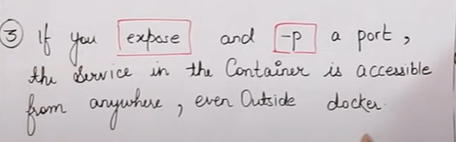 ③ If you expose and -p a port,
the service in the Container is accessible
from anywhere, even Outside docker.